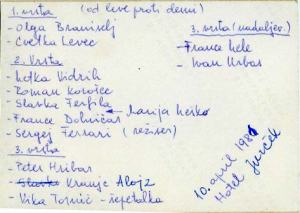 1. vrsta (od leve proti desni)
- Olga
- Cvetka Levec
2. Vrsta
- Metka Vidrih
- Roman Korošec
- Slavka Terfila
Marija Meško
- France Dolničar
- Sergej Ferrari (režiser)
3. vrsta
- Peter Hribar
- Slavko Kranjc Alojz
- Vika - šepetalka
3. vrsta (nadaljev.)
- France Mele
- Ivan Urbas
10. april 1981
Hotel Jurček